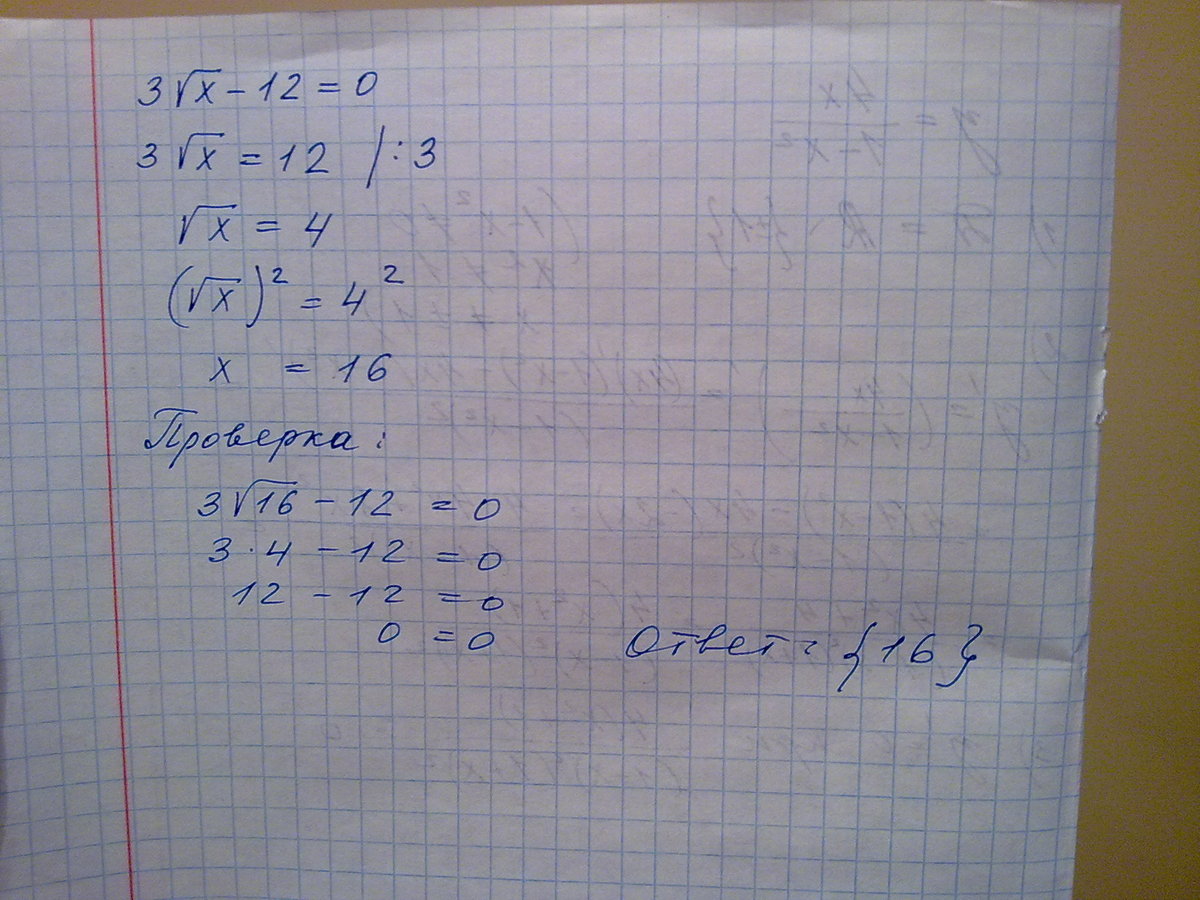 3√x - 12 = 0
3√x = 12 /:3
√x = 4
(√x)² = 4²
x = 16
Проверка:
3√16 - 12 = 0
3·4 - 12 = 0
12 - 12 = 0
0 = 0
Ответ: {16}